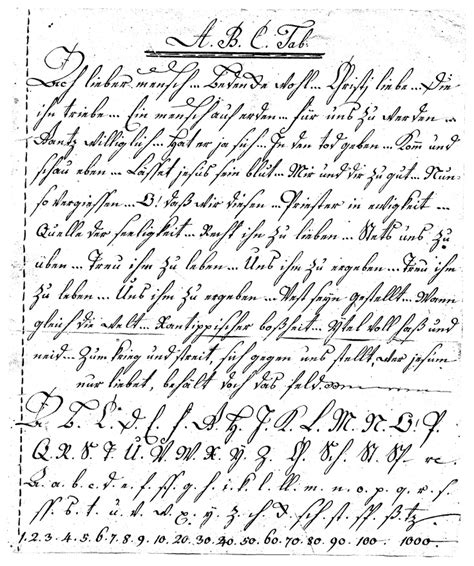 A. B. C. Tab:
Ach lieber mensch... Bedencke wohl... Christj liebe... Die
ihn triebe... Ein mensch auf erden... für uns zu werden...
Gantz williglich... Hat er ja sich... In den tod geben... Kom und
schau eben... Lässet jesus sein blut... Mir und dir zu gut... Nun
so vergiessen... O! daß wir diesen... Priester in ewigkeit...
Quelle der seeligkeit... Recht ihn zu lieben... Stets uns zu
üben... Treu ihm zu leben... Uns ihm zu ergeben... Treu ihm
zu leben... Uns ihm zu ergeben... Vest seyn gestellt... Wann
gleich die welt... Xantippischer boßheit... Ytel voll haß und
neid... Zum krieg und streit, sich gegen uns stellt, wer jesum
nur liebet, behält doch das feld.
A. B. C. D. E. F. G. H. J. K. L. M. N. O! P.
Q. R. S. T. U. V. W. X. Y. Z. Ch. Sch. St. Sp. rc.
a. b. c. d. e. f. ff. g. h. i. k. l. ll. m. n. o. p. q. r. s.
ss. s. t. u. v. w. x. y. z. ch. ck. sch. st. sp. ß. tz.
1. 2. 3. 4. 5. 6. 7. 8. 9. 10. 20. 30. 40. 50. 60. 70. 80. 90. 100. 1000.